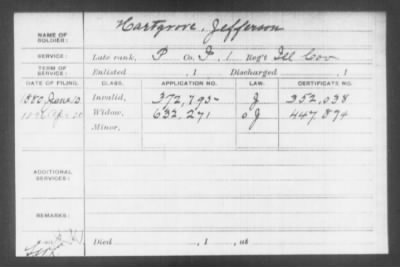 NAME OF SOLDIER: Hartgrove, Jefferson
SERVICE: Late rank, P Co. I, 1 Reg't Ill Cav
TERM OF SERVICE: Enlisted , 1 Discharged , 1
DATE OF FILING. CLASS. APPLICATION NO. LAW. CERTIFICATE NO.
1880 June 10 Invalid, 372,793 J 352,038
Widow, 632,271 J 447,894
Minor,
ADDITIONAL SERVICES:
REMARKS:
Died , 1 , at